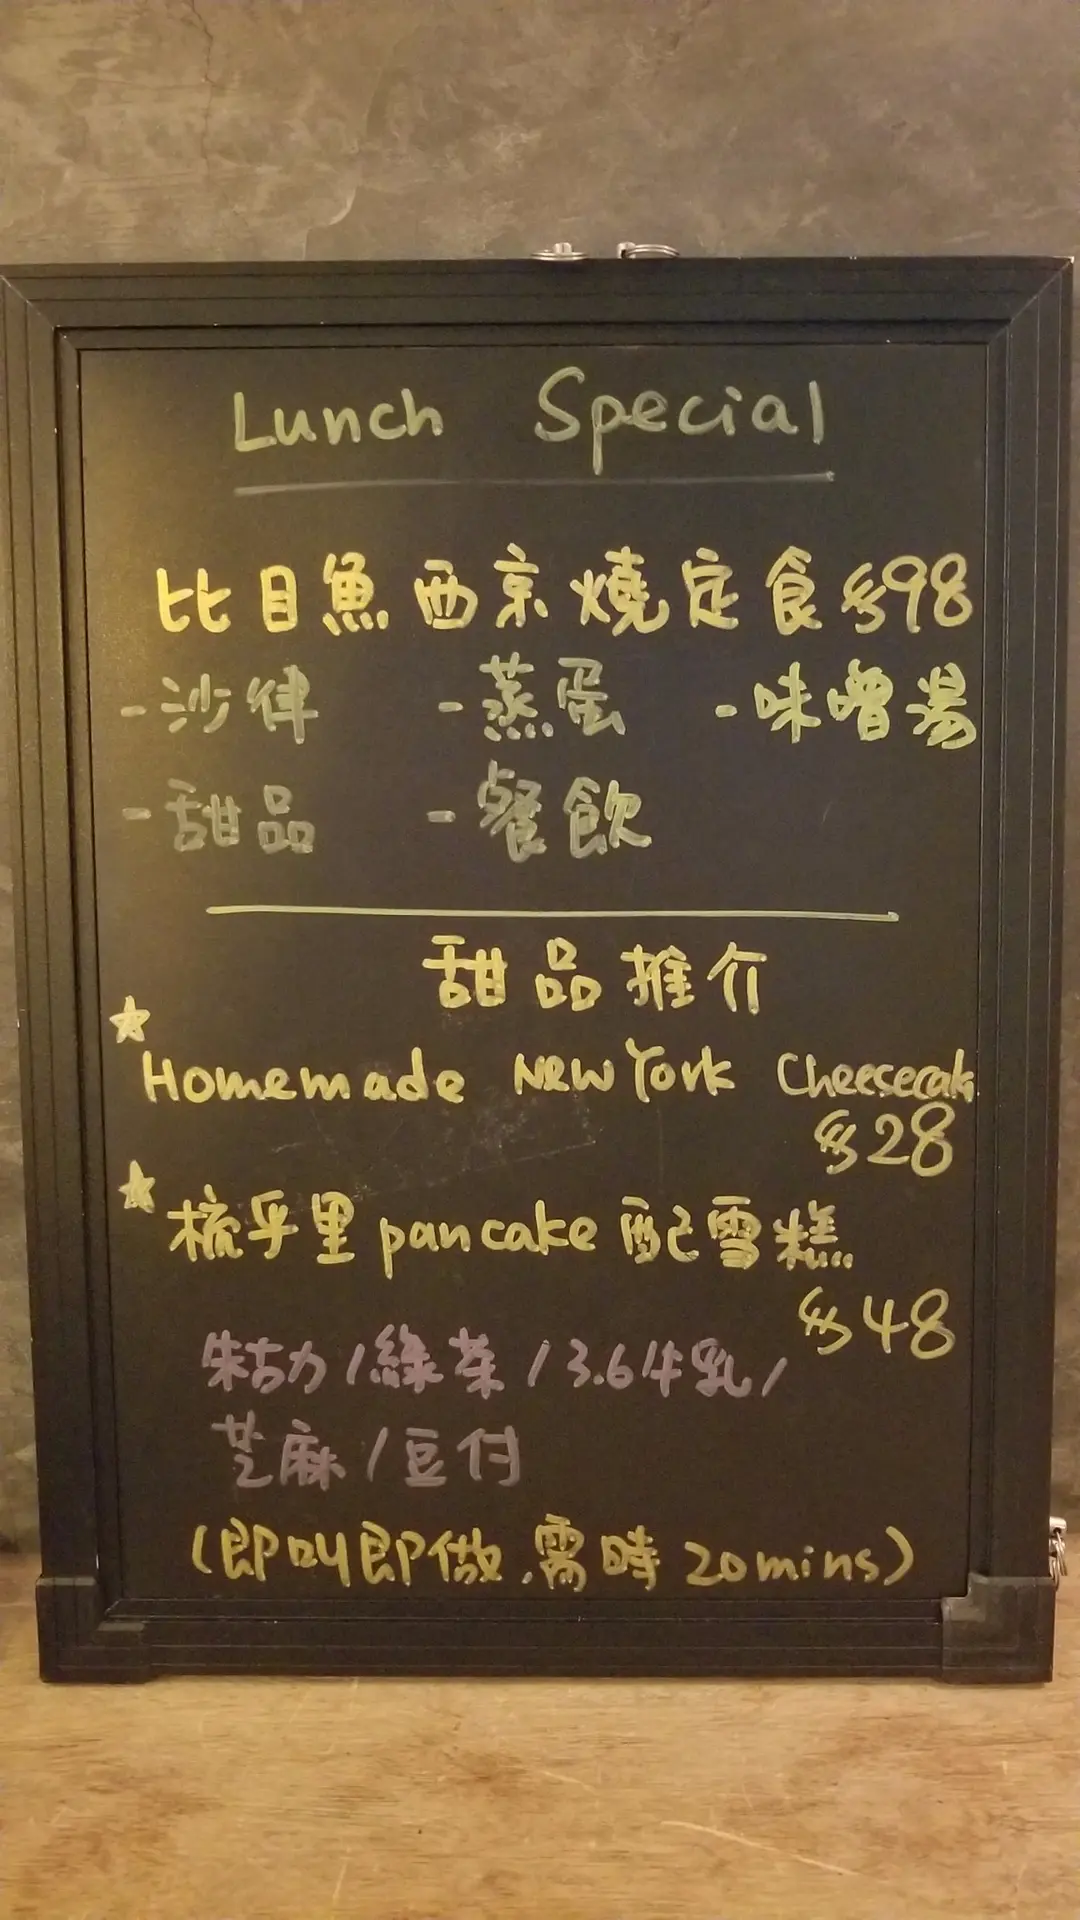 Lunch Special
比目魚西京燒定食 $98
-沙律 -蒸蛋 -味噌湯
-甜品 -餐飲
甜品推介
☆ Homemade New York Cheesecake
$28
☆ 梳乎里 pancake 配雪糕
$48
朱古力/綠茶/3.6牛乳/
芝麻/豆付
(即叫即做,需時20mins)